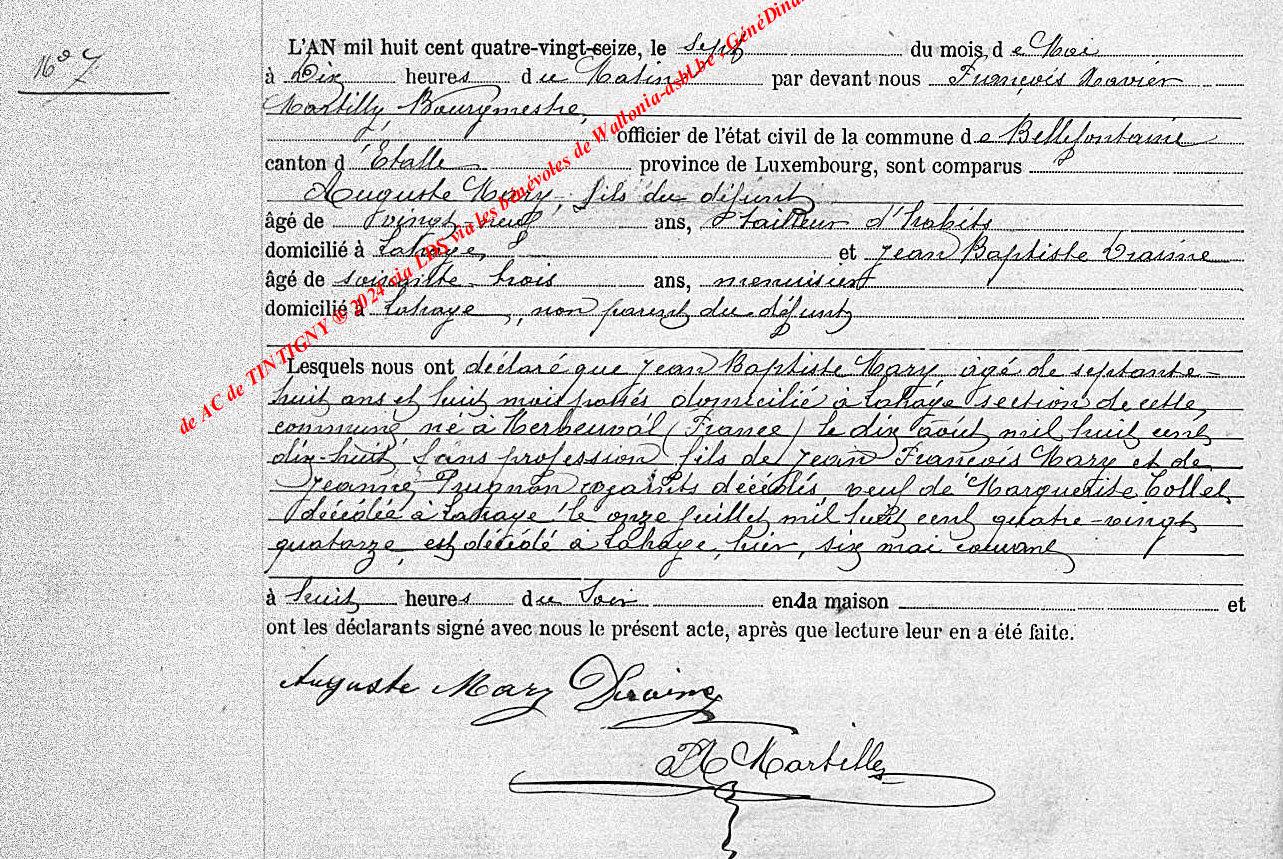 N° 7
L'AN mil huit cent quatre-vingt-seize, le sept du mois de Mai
à Dix heures du Matin par devant nous François Xavier
Martilly, Bourgmestre,
officier de l'état civil de la commune de Bellefontaine
canton d'Etalle province de Luxembourg, sont comparus
Auguste Mary, fils du défunt
âgé de vingt-neuf ans, tailleur d'habits
domicilié à Lahage, et Jean Baptiste
âgé de soixante-trois ans, menuisier
domicilié à Lahage, non parent du défunt
Lesquels nous ont déclaré que Jean Baptiste Mary, âgé de septante-
huit ans et huit mois passés domicilié à Lahage section de cette
commune, né à Herbeuval (France) le dix août mil huit cent
dix-huit, sans profession fils de Jean François Mary et de
Jeanne décédés, veuf de Marguerite Collet
décédée à Lahage le onze juillet mil huit cent quatre-vingt
quatorze, est décédé à Lahage, hier, six mai courant
à huit heures du Soir en la maison et
ont les déclarants signé avec nous le présent acte, après que lecture leur en a été faite.
Auguste Mary Deraine
Martilly
de AC de TINTIGNY @ 2024 via LDS via les bénévoles de Wallonia-asbl.be, GénéDina